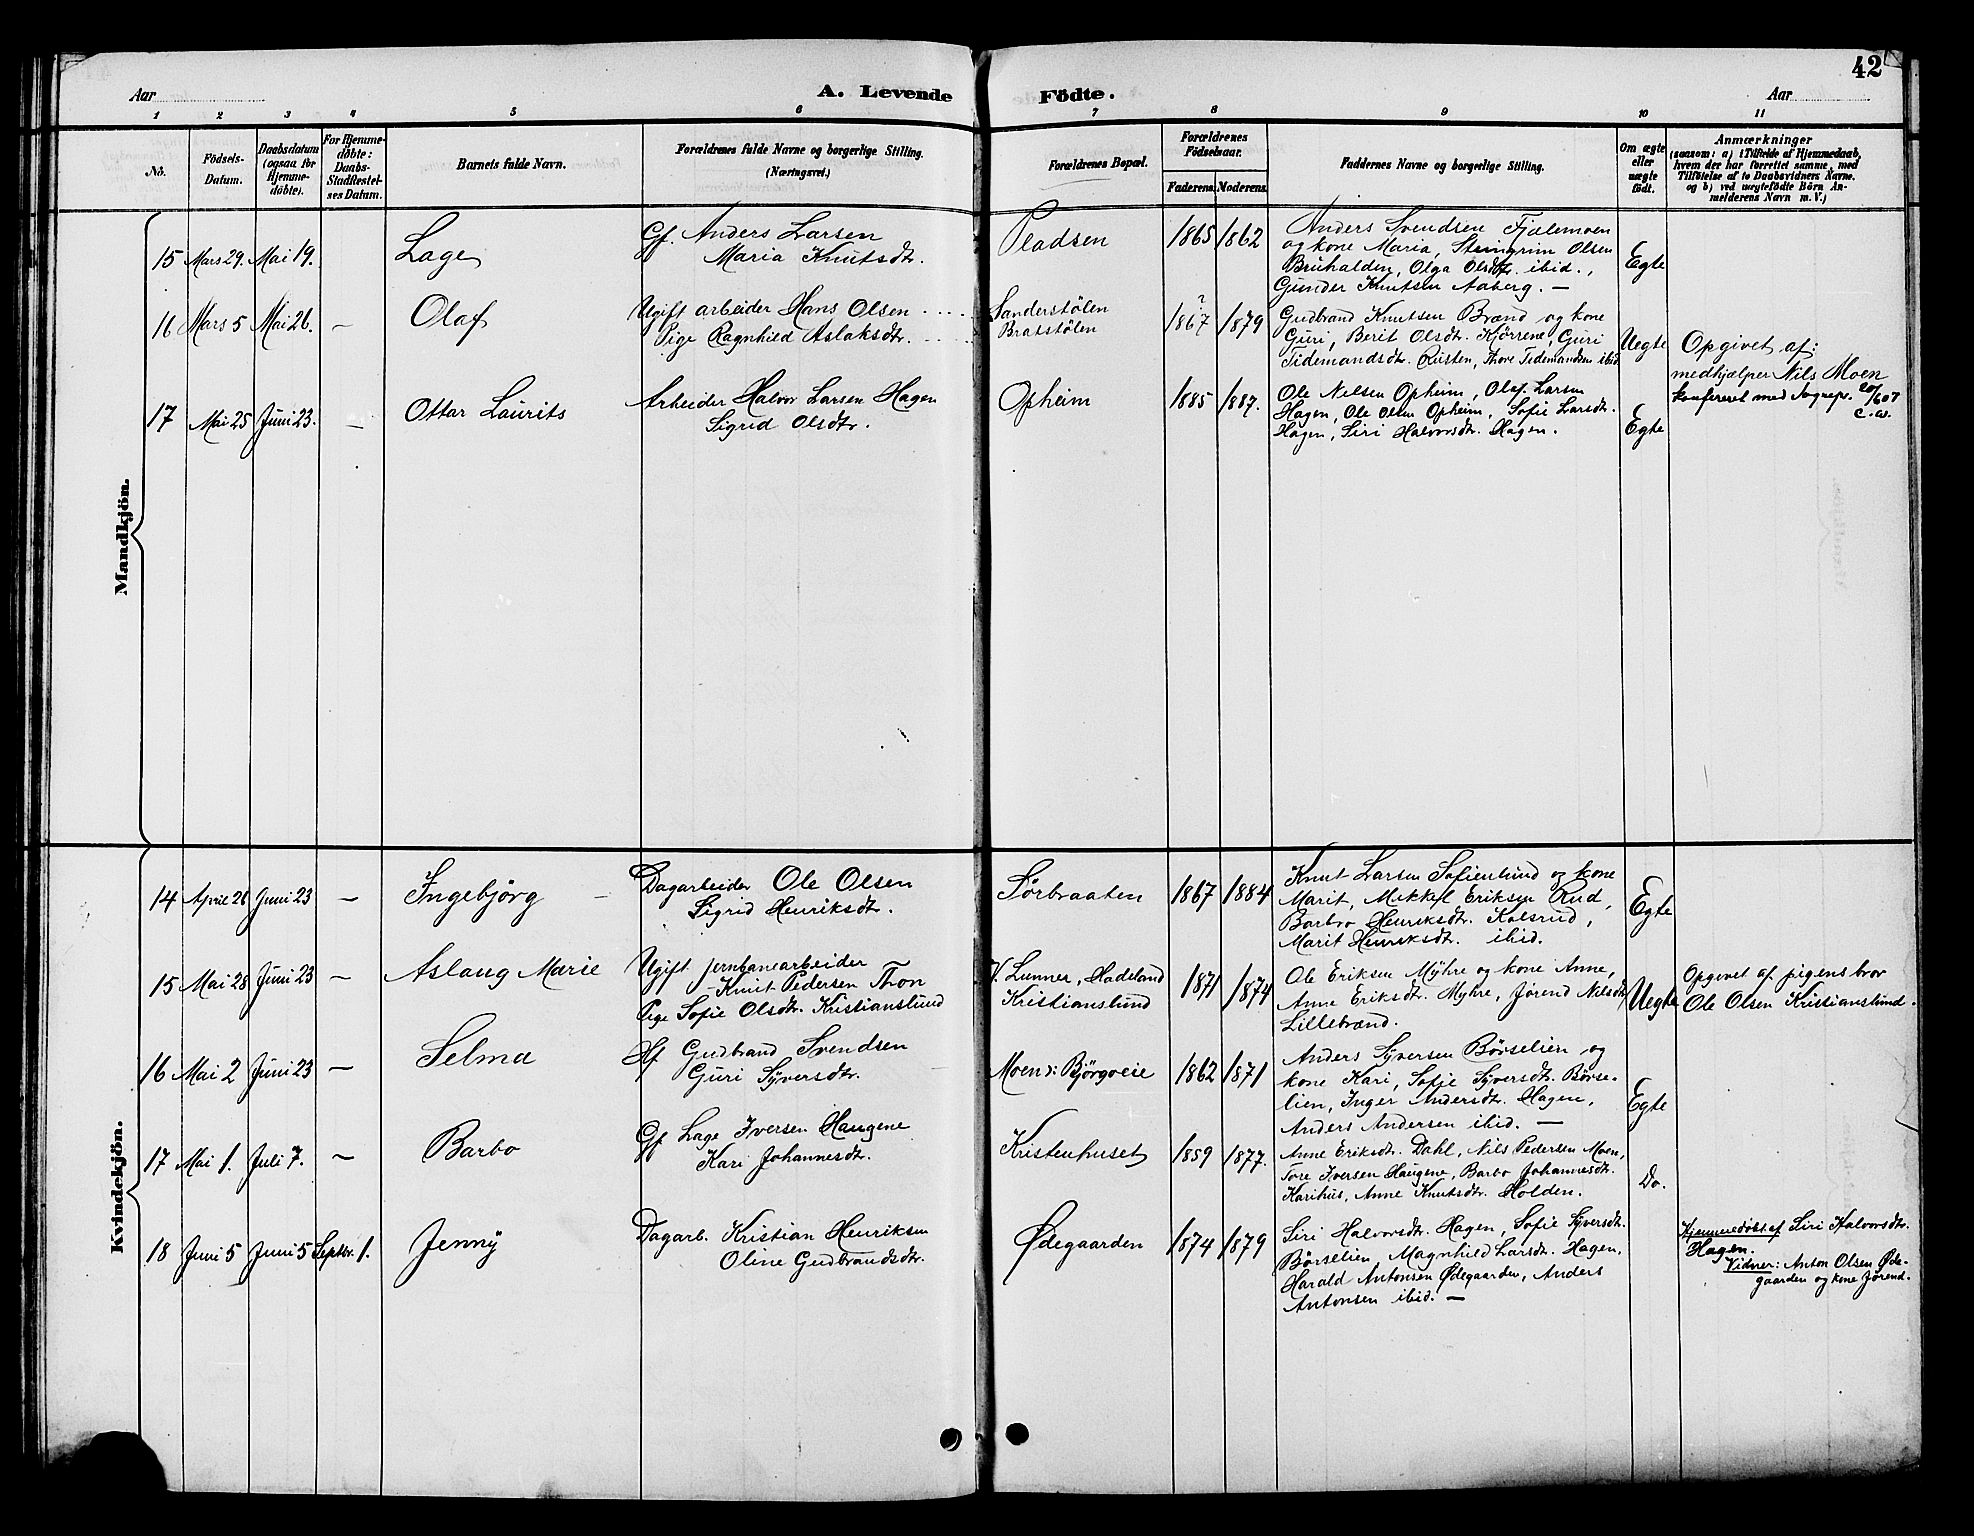 42
Aar
A. Levende Födte.
Aar
1 2 3 4 5 6 7 8 9 10 11
No.
Födsels-
Datum.
Daabsdatum
(ogsaa for
Hjemme-
döbte).
For Hjemme-
döbte:
Daabs-
Stadfæstel-
ses Datum.
Barnets fulde Navn.
Forældrenes fulde Navne og borgerlige Stilling.
(Næringsvei.)
Forældrenes Bopæl.
Forældrenes
Födselsaar.
Faderens. Moderens.
Faddernes Navne og borgerlige Stilling.
Om ægte
eller
uægte
födt.
Anmærkninger
(saasom: a) i Tilfælde af Hjemmedaab,
hvem der har forrettet samme, med
Tilföielse af to Daabsvidners Navne.
og b) ved uægtefödte Börn An-
melderens Navn m. V.)
Mandkjön.
15 Mars 29. Mai 19. Lage
Gf. Anders Larsen
Maria Knutsdtr.
Pladsen 1865 1862
Anders Svendsen Fjælemoen
og kone Maria, Steingrim Olsen
Bruhalden, Olga Olsdtr. ibid.,
Gunder Knutsen Aaberg. —
Egte
16 Mars 5 Mai 26. — Olaf
Ugift arbeider Hans Olsen ....
Pige Ragnhild Aslaksdtr. ....
Sanderstölen
Brasstölen
?
1867 1879
Gudbrand Knutsen Brænd og kone
Guri, Berit Olsdtr. Kjörrene, Guri
Tidemandsdtr. Rusten, Thore Tidemandsen ibid
Uegte
Opgivet af:
medhjælper Nils Moen
konfereret med Sognepr. 20/6 07
17 Mai 25 Juni 23. — Ottar Laurits
Arbeider Halvor Larsen Hagen
Sigrid Olsdtr.
Opheim 1885 1887.
Ole Nilsen Opheim, Olaf Larsen
Hagen, Ole Olsen Opheim, Sofie Larsdtr.
Hagen, Siri Halvorsdtr. Hagen.
Egte
Kvindekjön.
14 April 26 Juni 23 — Ingebjörg —
Dagarbeider Ole Olsen
Sigrid Henriksdtr.
Sörbraaten 1867 1884
Knut Larsen Sofienlund og kone
Marit, Mikkel Eriksen Rud,
Barbro Henriksdtr. Kolsrud,
Marit Henriksdtr. ibid.
Egte
15 Mai 28 Juni 23 — Aslaug Marie
Ugift jernbanearbeider
Knut Pedersen Thon
Pige Sofie Olsdtr. Kristianslund
V. Lunner, Hadeland
Kristianslund
1871 1874
Ole Eriksen Myhre og kone Anne,
Anne Eriksdtr. Myhre, Jörend Nilsdtr.
Lillebrænd.
Uegte
Opgivet af pigens bror
Ole Olsen Kristianslund.
16 Mai 2 Juni 23 — Selma
Gudbrand Svendsen
Guri Syversdtr.
Moen i Björgoeie 1862 1871
Anders Syversen Börselien og
kone Kari, Sofie Syversdtr. Börse-
lien, Inger Andersdtr. Hagen,
Anders Andersen ibid. —
Egte
17 Mai 1. Juli 7. — Barbo
Gf Lage Iversen Haugene
Kari Johannesdtr.
Kristenhuset 1859 1877.
Anne Eriksdtr. Dahl, Nils Pedersen Moen,
Tore Iversen Haugene, Barbo Johannesdtr.
Karihus, Anne Knutsdtr. Holden.
Do.
18 Juni 5 Juni 5 Septbr. 1. Jenny
Dagarb. Kristian Henriksen
Oline Gudbrandsdtr.
Ödegaarden 1874 1879
Siri Halvorsdtr. Hagen, Sofie Syversdtr.
Börselien Magnhild Larsdtr. Hagen,
Harald Antonsen Ödegaarden, Anders
Antonsen ibid. —
Hjemmedöbt af Siri Halvorsdtr.
Hagen.
Vidner: Anton Olsen Öde-
gaarden og kone Jörend.